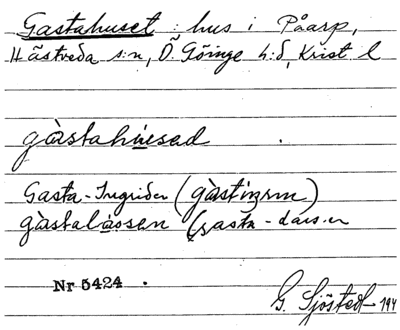 Gastahuset : hus i Påarp,
Hästveda s:n, Ö. Göinge h:d, Krist l
gàstahùsad
Gasta-Ingrider (gàstiŋrın)
Gasta-
Nr 5424.
G. Sjöstedt 194